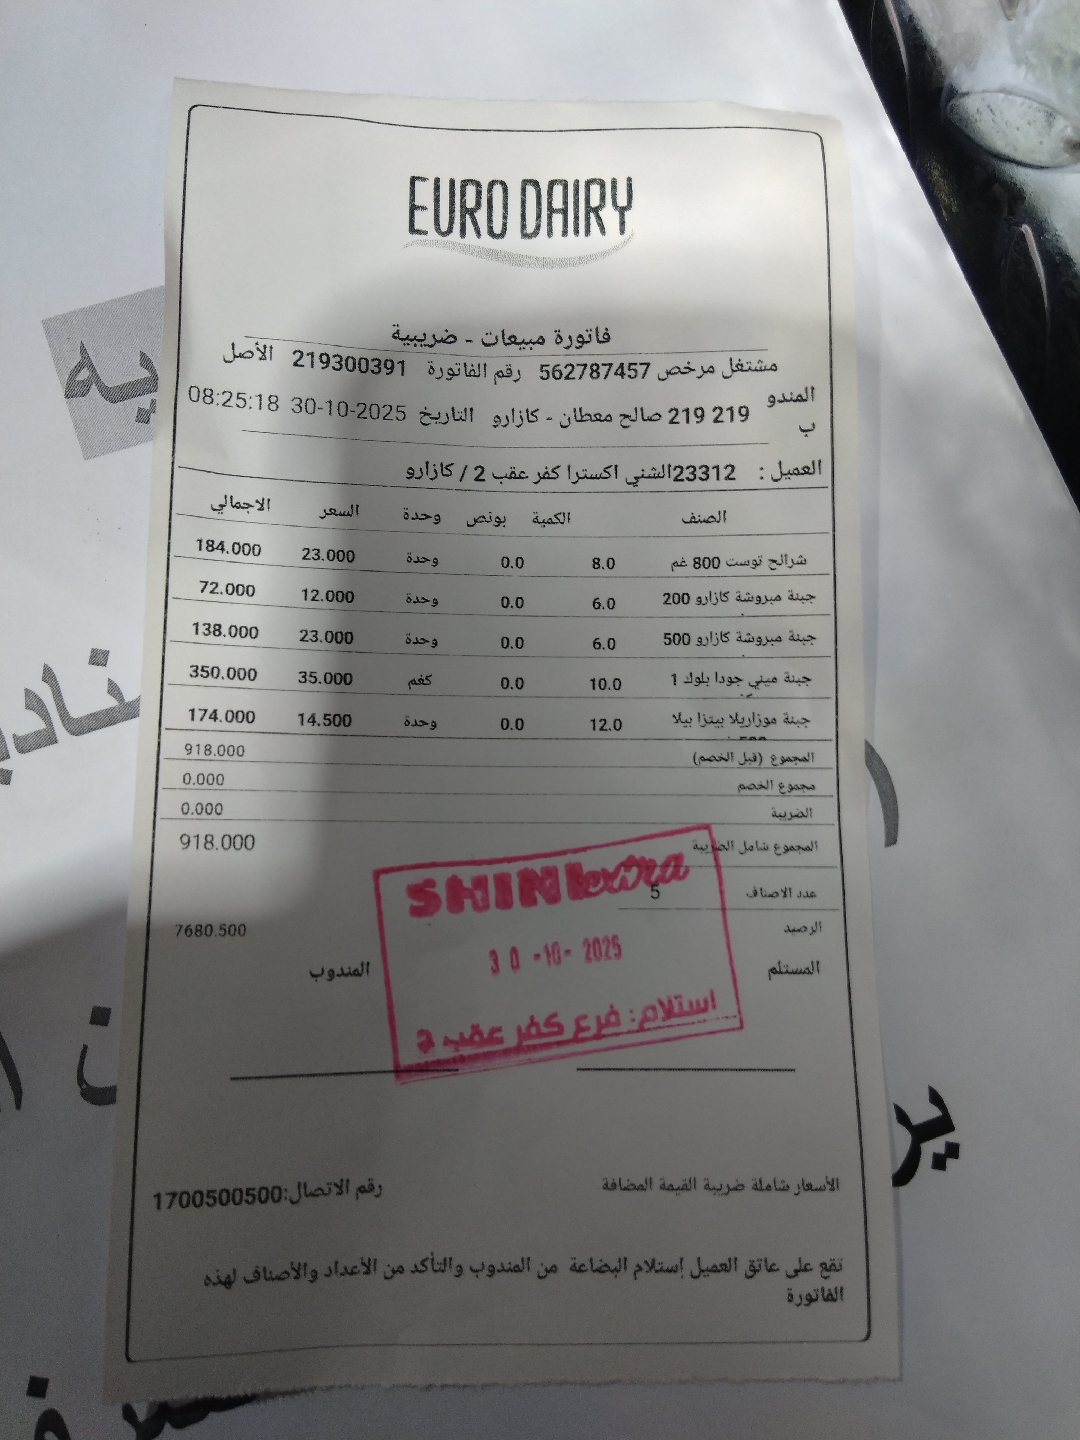 EURO DAIRY
فاتورة مبيعات - ضريبية
مشتغل مرخص 562787457 رقم الفاتورة 219300391 الأصل
المندوب 219 219 صالح معطان - كازارو التاريخ 30-10-2025 08:25:18
العميل : 23312الشني اكسترا كفر عقب 2 / كازارو
الصنف الكمية بونص وحدة السعر الاجمالي
شرائح توست 800 غم 8.0 0.0 وحدة 23.000 184.000
جبنة مبروشة كازارو 200 6.0 0.0 وحدة 12.000 72.000
جبنة مبروشة كازارو 500 6.0 0.0 وحدة 23.000 138.000
جبنة ميني جودا بلوك 1 10.0 0.0 كغم 35.000 350.000
جبنة موزاريلا بيتزا بيلا 12.0 0.0 وحدة 14.500 174.000
المجموع (قبل الخصم) 918.000
مجموع الخصم 0.000
الضريبة 0.000
المجموع شامل الضريبة 918.000
عدد الاصناف 5
الرصيد 7680.500
المستلم المندوب
SHINI extra
30 -10- 2025
استلام: فرع كفر عقب 2
الأسعار شاملة ضريبة القيمة المضافة رقم الاتصال:1700500500
تقع على عاتق العميل إستلام البضاعة من المندوب والتأكد من الأعداد والأصناف لهذه
الفاتورة